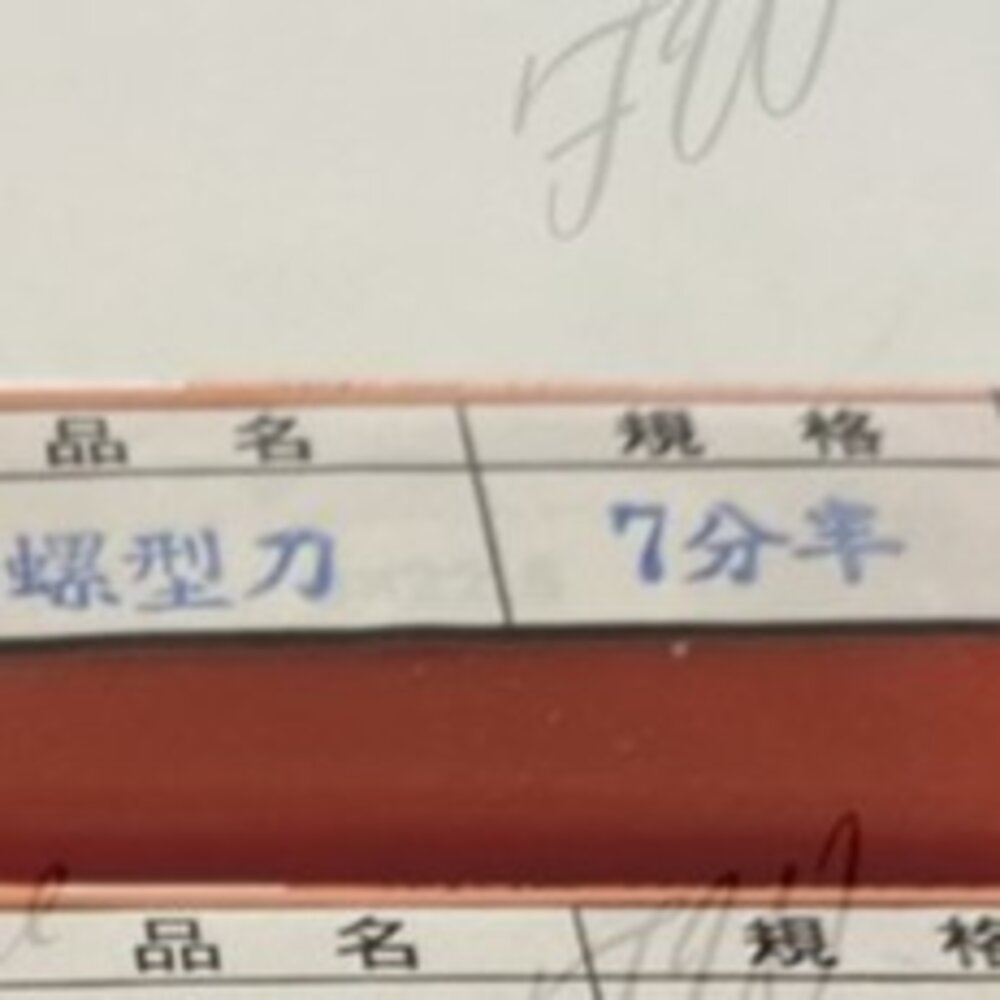 品名 規格
螺型刀 7分半
品名 規格